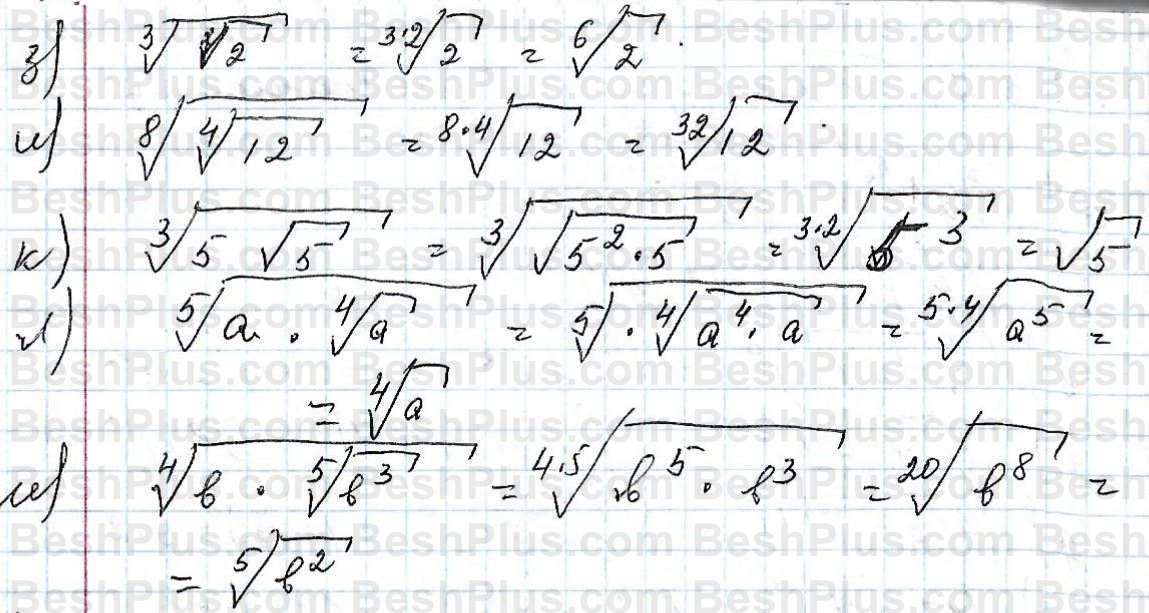 з) ∛(√2) = ³·²√2 = ⁶√2.
и) ⁸√(⁴√12) = ⁸·⁴√12 = ³²√12.
к) ∛(5 √5) = ∛(√(5² · 5)) = ³·²√(5³) = √5
л) ⁵√(a · ⁴√a) = ⁵√(· ⁴√(a⁴ · a)) = ⁵·⁴√(a⁵) =
= ⁴√a
м) ⁴√(b · ⁵√(b³)) = ⁴·⁵√(b⁵ · b³) = ²⁰√(b⁸) =
= ⁵√(b²)